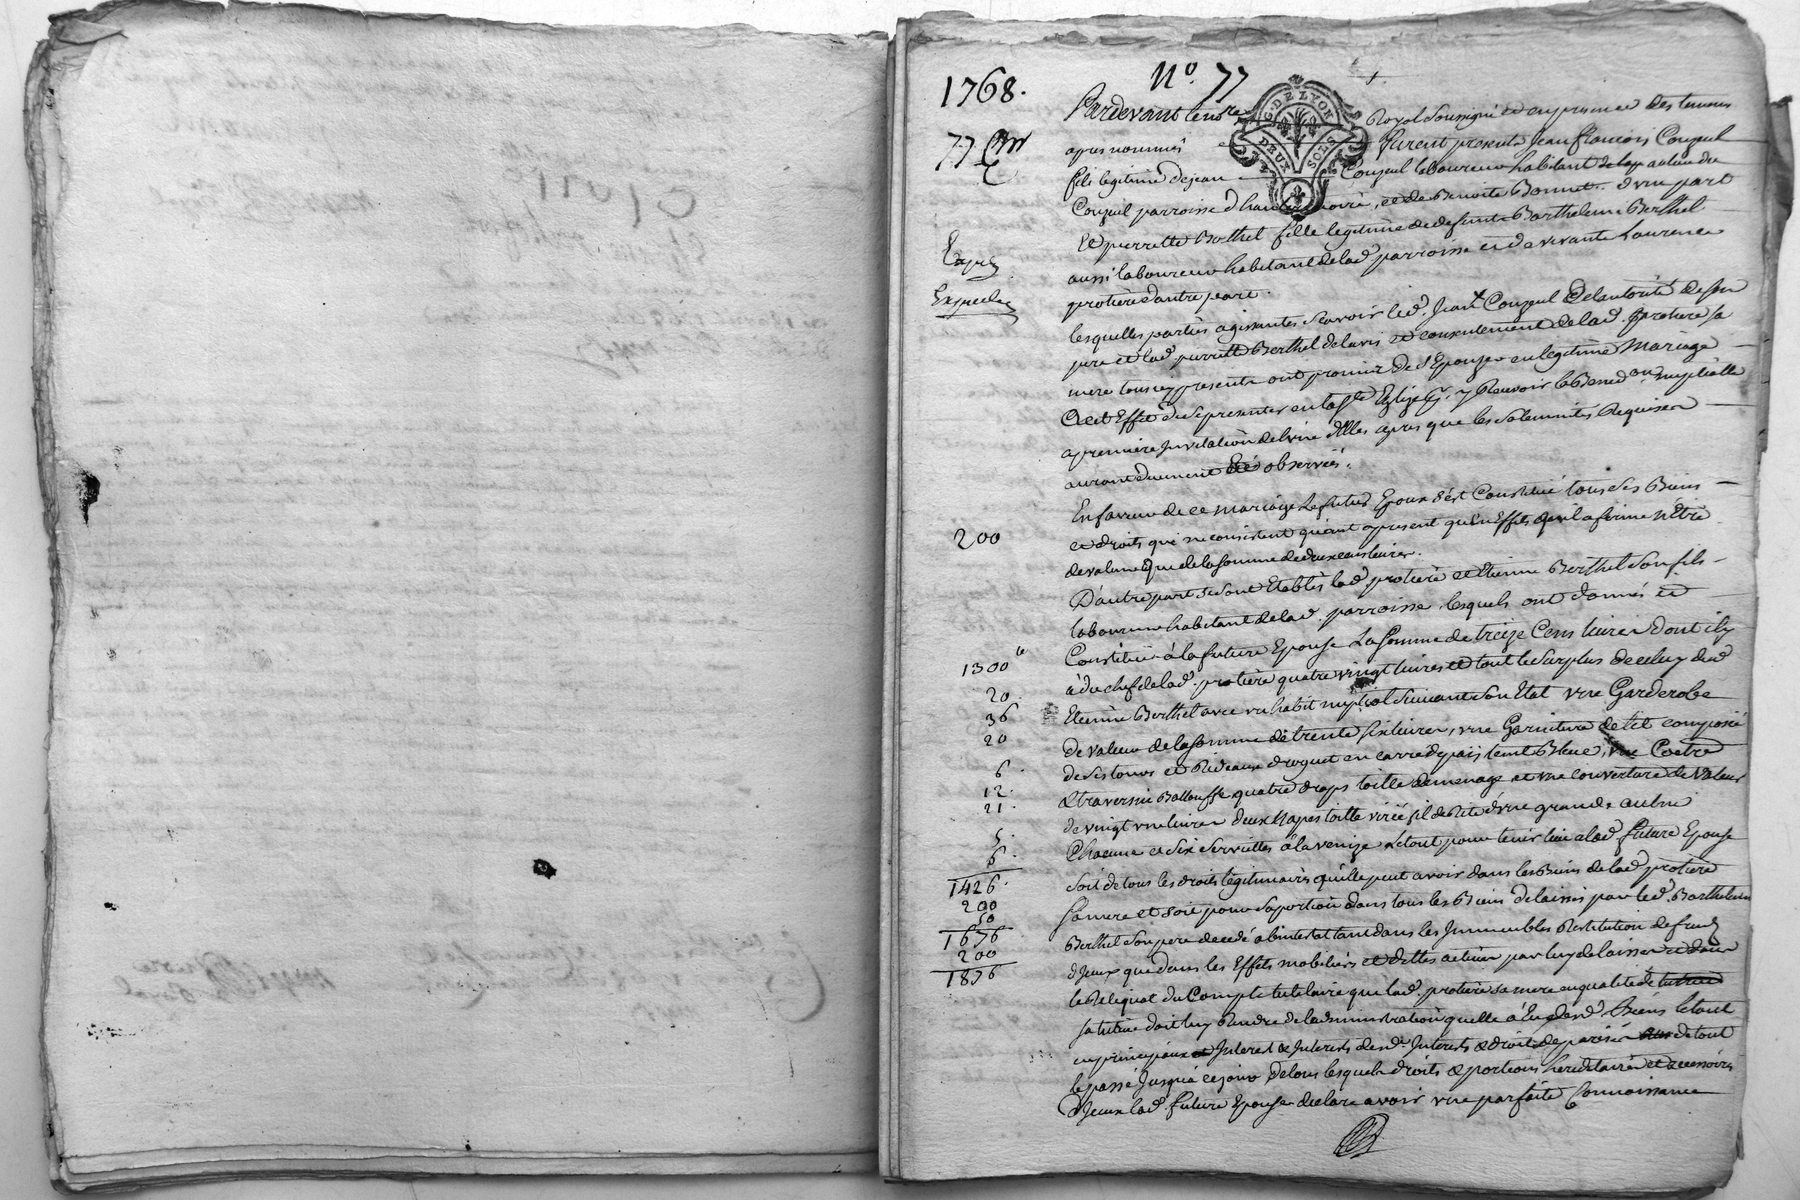 1768.
N.º 77
77 Cm
G. DE LYON
DEUX SOLS
Pardevant le no.re Royal Soussigné et en presence des temoins
apres nommés Furent presents Jean francois Couzeul
fils legitime de jean Couzeul laboureur habitant de la
Couzeul parroisse d'haute rivoire, et de Benoite Bonnet d'une part
Et pierrette Berthel fille legitime de defunt Barthelemi Berthel
aussi laboureur habitant de lad. parroisse et de vivante Laurence
protiere d'autre part.
Expe
Expediee
lesquelles parties agissantes Scavoir led. Jean Couzeul de l'autorité de son
pere et lad. pierrette Berthel de l'avis et consentement de lad. protiere sa
mere tous icy presents ont promis de S'Epouser en legitime Mariage
A cet Effet de Se presenter en to. Ste Eglise pr. y Recevoir la Bened.on nuptialle
a premiere Invitation de l'une d'Elles apres que les Solemnités Requises
auront duement Eté observées.
En faveur de ce Mariage Le futur Epoux S'est Constitué tous Ses Biens
200
et droits qui ne consistent quant apresent qu'en Effets qu'il afirme N'Etre
de valeur que de la Somme de deux cens livres.
D'autre part Se Sont Etablis lad. protiere et Etienne Berthel Son fils
laboureur habitant de lad. parroisse lesquels ont donnés et
1300 tt
Constitué à la future Epouse La Somme de treize Cens livres dont il y
20.
à du chef de lad. protiere quatre vingt livres et tout le Surplus de celuy dud.
36
Etienne Berthel avec un habit nuptial Suivant Son Etat une Garderobe
20
de valeur de la Somme de trente Six livres, une Garniture de lit composée
6.
de Ses tours et Rideaux droguet en carré de pays teint Bleue, une Coetre
12.
& traversin Ballouffe quatre draps toille de menage et une couverture de valeur
21.
de vingt une livres deux Napes toille
5.
Chacune et Six Serviettes à la venize Le tout pour tenir lieu a lad. future Epouse
6.
1426.
Soit de tous les droits légitimaires qu'elle peut avoir dans les Biens de lad. protiere
200
Sa mere et Soit pour Sa portion dans tous les Biens delaissés par led. Barthelemi
50
1676.
Berthel Son pere decedé abintestat tant dans les Immeubles Restitution de fruits
200
d'Iceux que dans les Effets mobiliers et dettes actives par luy delaissés
1876
le Reliquat du Compte tutelaire que lad. protiere Sa mere en qualité de
Sa tutrice doit luy Rendre de l'administration qu'elle à Eu desd. Biens le tout
en principaux Interest & Interests desd. Interests & droits de tout
le passé Jusqu'à ce jour De tous lesquels droits & portions hereditaires et accessoires
d'Iceux lad. future Epouse declare avoir une parfaite Connoissance